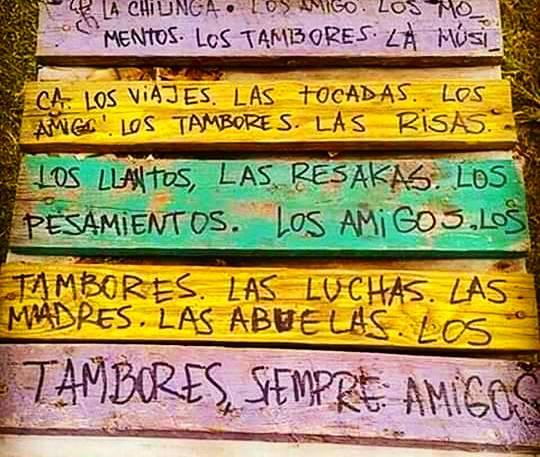 LA CHILINGA. LOS AMIGO. LOS MO_
MENTOS. LOS TAMBORES. LA MÚSI_
CA. LOS VIAJES. LAS TOCADAS. LOS
AMIGO'. LOS TAMBORES. LAS RISAS.
LOS LLANTOS, LAS RESAKAS. LOS
PESAMIENTOS. LOS AMIGOS. LOS
TAMBORES. LAS LUCHAS. LAS
MADRES. LAS ABUELAS. LOS
TAMBORES, SIEMPRE AMIGOS